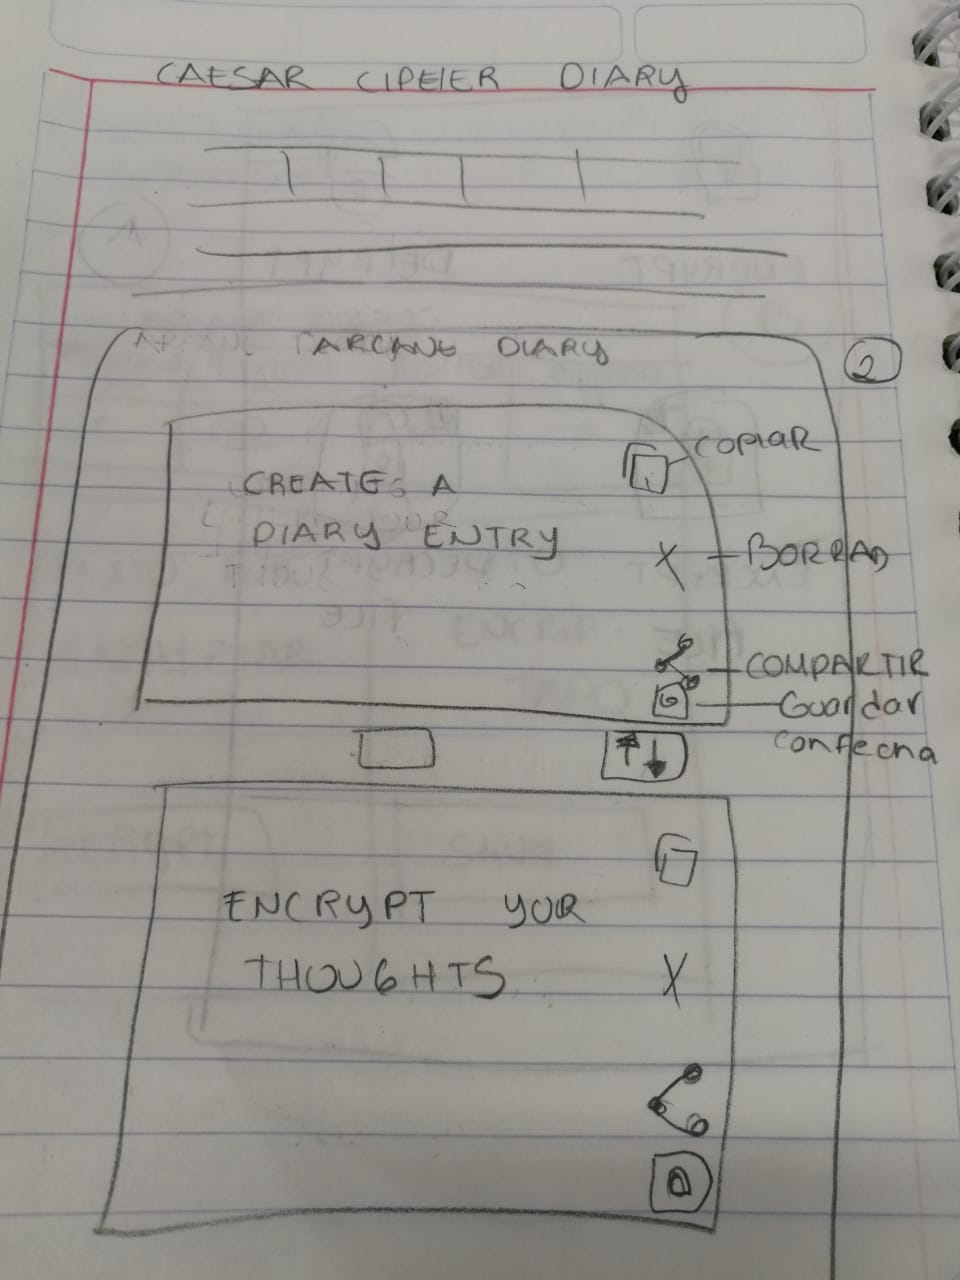 CAESAR CIPHER DIARY
ARCANE DIARY
2
COPIAR
CREATE A
DIARY ENTRY
X
BORRAD
COMPARTIR
Guardar
confecha
ENCRYPT YOUR
THOUGHTS
X